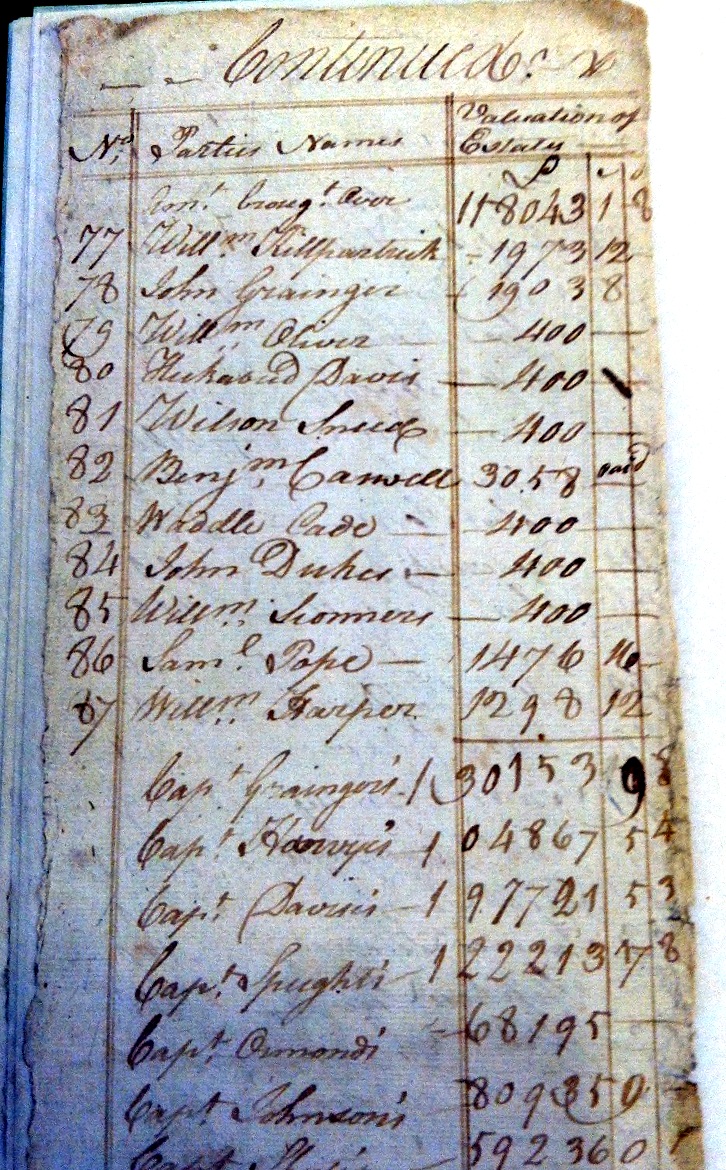 Continued
Nos Parties Names Valuation of Estates
£ s d
Amt. broug.t Over 118043 1 8
77 Willm. Killpatrick 1973 12
78 John Grainger 1903 8
79 Willm. Oliver 400
80 Davis 400
81 Wilson Sneed 400
82 Benjm. Caswell 3058
83 Waddle Cade 400
84 John Dukes 400
85 Willm. 400
86 Saml. Pope 1476 16
87 Willm. Harper 1298 12
Capt. Grainger's 130153 9 8
Capt. 104867 5 4
Capt. Davis's 197721 5 3
Capt. Speight's 122213 17 8
Capt. Ormond's 68195
Capt. Johnson's 80935 0
Capt. 59236 0